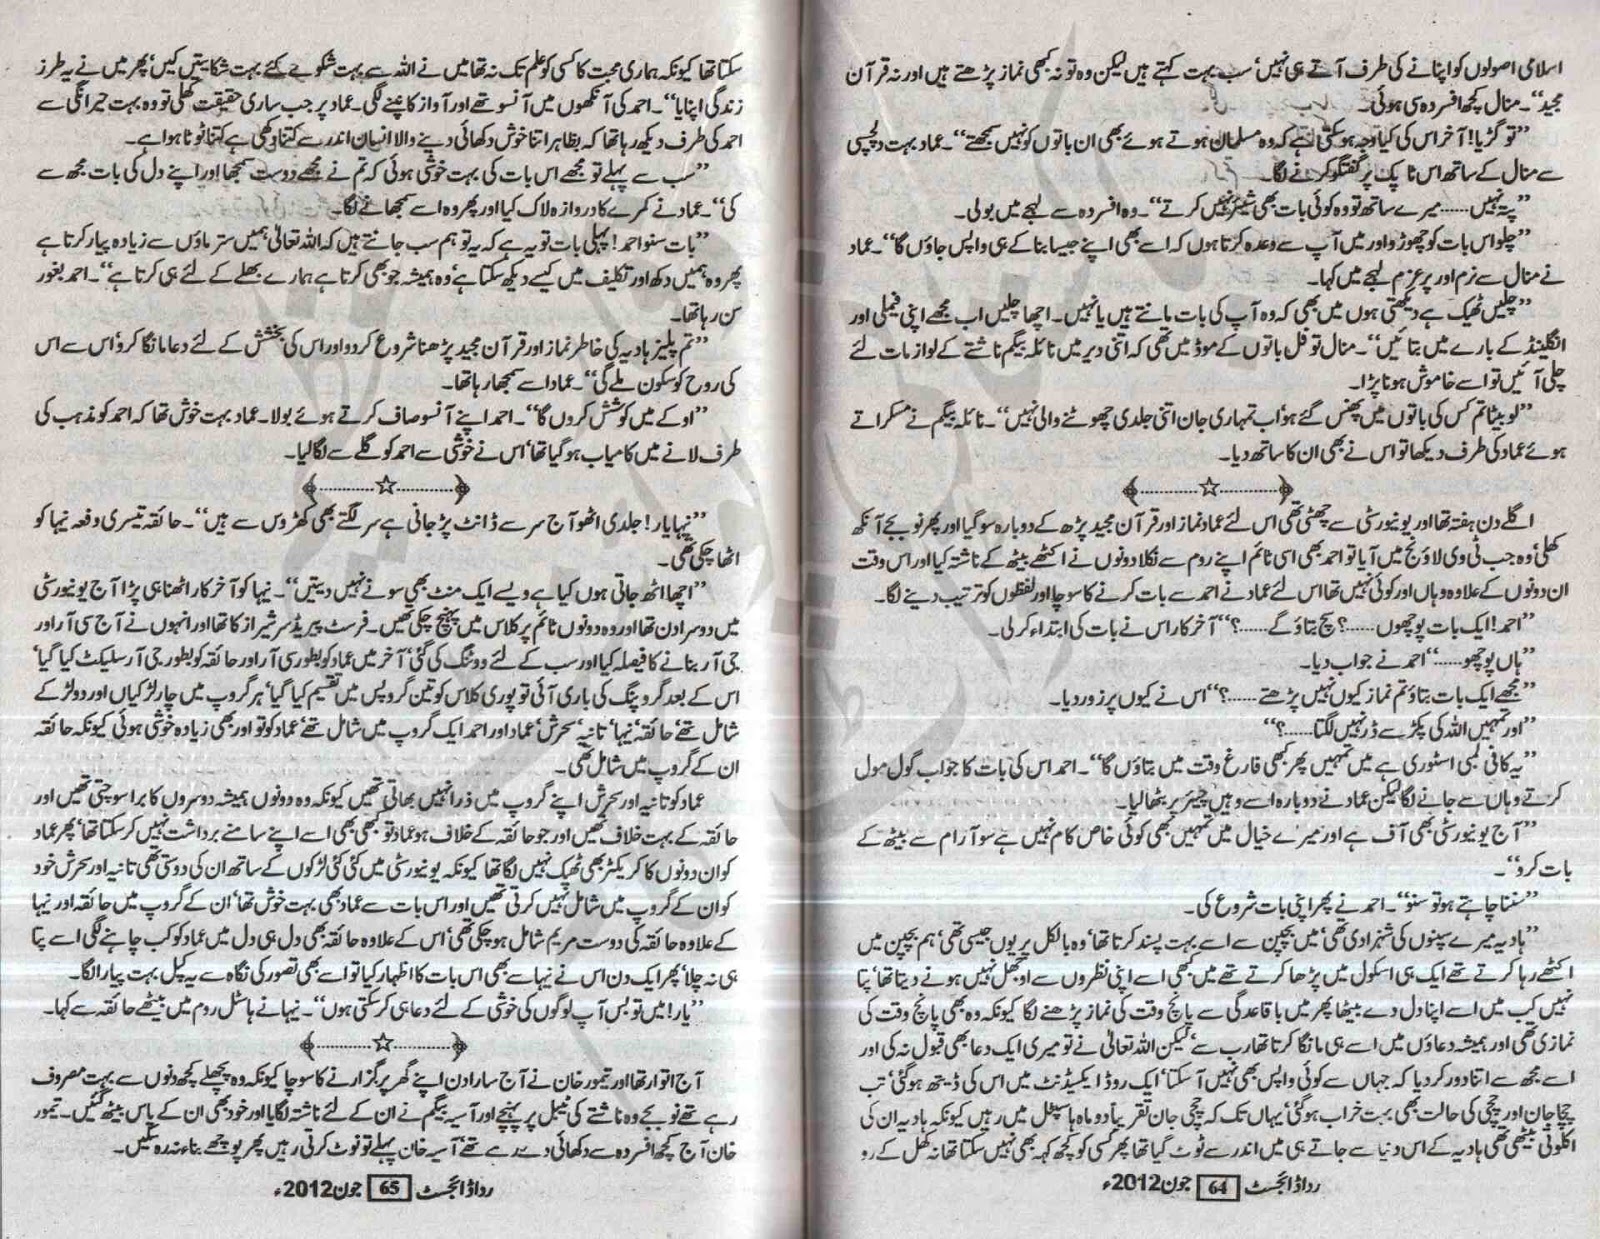 اسلامی اصولوں کو اپنانے کی طرف آتے ہی نہیں‘ سب بہت کہتے ہیں لیکن وہ تو نہ کبھی نماز پڑھتے ہیں اور نہ قرآن
مجید‘‘۔ منال کچھ افسردہ سی ہوئی۔
’’تو گڑیا! آخر اس کی کیا وجہ ہو سکتی ہے کہ وہ مسلمان ہوتے ہوئے بھی ان باتوں کو نہیں سمجھتے‘‘۔ عماد بہت دلچسپی
سے منال کے ساتھ اس ٹاپک پر گفتگو کرنے لگا۔
’’پتہ نہیں...... میرے ساتھ تو وہ کوئی بات بھی شیئر نہیں کرتے‘‘۔ وہ افسردہ سے لہجے میں بولی۔
’’چلو اس بات کو چھوڑو اور میں آپ سے وعدہ کرتا ہوں کہ اسے بھی اپنے جیسا بنا کے ہی واپس جاؤں گا‘‘۔ عماد
نے منال سے نرم اور پرعزم لہجے میں کہا۔
’’چلیں ٹھیک ہے دیکھتی ہوں میں بھی کہ وہ آپ کی بات مانتے ہیں یا نہیں۔ اچھا چلیں اب مجھے اپنی فیملی اور
انگلینڈ کے بارے میں بتائیں‘‘۔ منال تو فل باتوں کے موڈ میں تھی کہ اتنی دیر میں نائلہ بیگم ناشتے کے لوازمات لئے
چلی آئیں تو اسے خاموش ہونا پڑا۔
’’لو بیٹا تم کس کی باتوں میں پھنس گئے ہو‘ اب تمہاری جان اتنی جلدی چھوٹنے والی نہیں‘‘۔ نائلہ بیگم نے مسکراتے
ہوئے عماد کی طرف دیکھا تو اس نے بھی ان کا ساتھ دیا۔
اگلے دن ہفتہ تھا اور یونیورسٹی سے چھٹی تھی اس لئے عماد نماز اور قرآن مجید پڑھ کے دوبارہ سو گیا اور پھر نو بجے آنکھ
کھلی‘ وہ جب ٹی وی لاؤنج میں آیا تو احمد بھی اسی ٹائم اپنے روم سے نکلا دونوں نے اکٹھے بیٹھ کے ناشتہ کیا اور اس وقت
ان دونوں کے علاوہ وہاں اور کوئی نہیں تھا اس لئے عماد نے احمد سے بات کرنے کا سوچا اور لفظوں کو ترتیب دینے لگا۔
’’احمد! ایک بات پوچھوں......؟ سچ بتاؤ گے......؟‘‘ آخر کار اس نے بات کی ابتداء کر لی۔
’’ہاں پوچھو......‘‘ احمد نے جواب دیا۔
’’مجھے ایک بات بتاؤ تم نماز کیوں نہیں پڑھتے......؟‘‘ اس نے کیوں پر زور دیا۔
’’اور تمہیں اللہ کی پکڑ سے ڈر نہیں لگتا......؟‘‘
’’یہ کافی لمبی اسٹوری ہے میں تمہیں پھر کبھی فارغ وقت میں بتاؤں گا‘‘۔ احمد اس کی بات کا جواب گول مول
کرتے وہاں سے جانے لگا لیکن عماد نے دوبارہ اسے وہیں چیئر پر بٹھا لیا۔
’’آج یونیورسٹی بھی آف ہے اور میرے خیال میں تمہیں بھی کوئی خاص کام نہیں ہے سو آرام سے بیٹھ کے
بات کرو‘‘۔
’’سننا چاہتے ہو تو سنو‘‘۔ احمد نے پھر اپنی بات شروع کی۔
’’ہادیہ میرے سپنوں کی شہزادی تھی‘ میں بچپن سے اسے بہت پسند کرتا تھا‘ وہ بالکل پریوں جیسی تھی‘ ہم بچپن میں
اکٹھے رہا کرتے تھے ایک ہی اسکول میں پڑھا کرتے تھے میں کبھی اسے اپنی نظروں سے اوجھل نہیں ہونے دیتا تھا‘ پتا
نہیں کب میں اسے اپنا دل دے بیٹھا پھر میں باقاعدگی سے پانچ وقت کی نماز پڑھنے لگا کیونکہ وہ بھی پانچ وقت کی
نمازی تھی اور ہمیشہ دعاؤں میں اسے ہی مانگا کرتا تھا رب سے‘ لیکن اللہ تعالیٰ نے تو میری ایک دعا بھی قبول نہ کی اور
اسے مجھ سے اتنا دور کر دیا کہ جہاں سے کوئی واپس بھی نہیں آ سکتا‘ ایک روڈ ایکسیڈنٹ میں اس کی ڈیتھ ہو گئی‘ تب
چچا جان اور چچی کی حالت بھی بہت خراب ہو گئی‘ یہاں تک کہ چچی جان تقریباً دو ماہ ہاسپٹل میں رہیں کیونکہ ہادیہ ان کی
اکلوتی بیٹی تھی ہادیہ کے اس دنیا سے جاتے ہی میں اندر سے ٹوٹ گیا تھا پھر کسی کو کچھ کہہ بھی نہیں سکتا تھا نہ کھل کے رو
رداڈائجسٹ 64 جون2012ء
سکتا تھا کیونکہ ہماری محبت کا کسی کو علم تک نہ تھا میں نے اللہ سے بہت شکوے کئے بہت شکایتیں کیں‘ پھر میں نے یہ طرز
زندگی اپنایا‘‘۔ احمد کی آنکھوں میں آنسو تھے اور آواز کانپنے لگی۔ عماد پر جب ساری حقیقت کھلی تو وہ بہت حیرانگی سے
احمد کی طرف دیکھ رہا تھا کہ بظاہر اتنا خوش دکھائی دینے والا انسان اندر سے کتنا دکھی ہے کتنا ٹوٹا ہوا ہے۔
’’سب سے پہلے تو مجھے اس بات کی بہت خوشی ہوئی کہ تم نے مجھے دوست سمجھا اور اپنے دل کی بات مجھ سے
کی‘‘۔ عماد نے کمرے کا دروازہ لاک کیا اور پھر وہ اسے سمجھانے لگا۔
’’بات سنو احمد! پہلی بات تو یہ ہے کہ یہ تو ہم سب جانتے ہیں کہ اللہ تعالیٰ ہمیں ستر ماؤں سے زیادہ پیار کرتا ہے
پھر وہ ہمیں دکھ اور تکلیف میں کیسے دیکھ سکتا ہے‘ وہ ہمیشہ جو بھی کرتا ہے ہمارے بھلے کے لئے ہی کرتا ہے‘‘۔ احمد بغور
سن رہا تھا۔
’’تم پلیز ہادیہ کی خاطر نماز اور قرآن مجید پڑھنا شروع کر دو اور اس کی بخشش کے لئے دعا مانگا کرو‘ اس سے اس
کی روح کو سکون ملے گی‘‘۔ عماد اسے سمجھا رہا تھا۔
’’اوکے میں کوشش کروں گا‘‘۔ احمد اپنے آنسو صاف کرتے ہوئے بولا۔ عماد بہت خوش تھا کہ احمد کو مذہب کی
طرف لانے میں کامیاب ہو گیا تھا‘ اس نے خوشی سے احمد کو گلے سے لگا لیا۔
’’نیہا یار! جلدی اٹھو آج سر سے ڈانٹ پڑ جانی ہے سر لگتے بھی کھڑوس سے ہیں‘‘۔ حائقہ تیسری دفعہ نیہا کو
اٹھا چکی تھی۔
’’اچھا اٹھ جاتی ہوں کیا ہے ویسے ایک منٹ بھی سونے نہیں دیتیں‘‘۔ نیہا کو آخر کار اٹھنا ہی پڑا آج یونیورسٹی
میں دوسرا دن تھا اور وہ دونوں ٹائم پر کلاس میں پہنچ چکی تھیں۔ فرسٹ پیریڈ سر شیراز کا تھا اور انہوں نے آج سی آر اور
جی آر بنانے کا فیصلہ کیا اور سب کے لئے ووٹنگ کی گئی‘ آخر میں عماد کو بطور سی آر اور حائقہ کو بطور جی آر سلیکٹ کیا گیا‘
اس کے بعد گروپنگ کی باری آئی تو پوری کلاس کو تین گروپس میں تقسیم کیا گیا‘ ہر گروپ میں چار لڑکیاں اور دو لڑکے
شامل تھے‘ حائقہ‘ نیہا‘ تانیہ‘ سحرش‘ عماد اور احمد ایک گروپ میں شامل تھے‘ عماد کو تو اور بھی زیادہ خوشی ہوئی کیونکہ حائقہ
ان کے گروپ میں شامل تھی۔
عماد کو تانیہ اور سحرش اپنے گروپ میں ذرا نہیں بھاتی تھیں کیونکہ وہ دونوں ہمیشہ دوسروں کا برا سوچتی تھیں اور
حائقہ کے بہت خلاف تھیں اور جو حائقہ کے خلاف ہو عماد تو کبھی بھی اسے اپنے سامنے برداشت نہیں کر سکتا تھا‘ پھر عماد
کو ان دونوں کا کریکٹر بھی ٹھیک نہیں لگا تھا کیونکہ یونیورسٹی میں کئی کئی لڑکوں کے ساتھ ان کی دوستی تھی تانیہ اور سحرش خود
کو ان کے گروپ میں شامل نہیں کرتی تھیں اور اس بات سے عماد بھی بہت خوش تھا‘ ان کے گروپ میں حائقہ اور نیہا
کے علاوہ حائقہ کی دوست مریم شامل ہو چکی تھی‘ اس کے علاوہ حائقہ بھی دل ہی دل میں عماد کو کب چاہنے لگی اسے پتا
ہی نہ چلا‘ پھر ایک دن اس نے نیہا سے بھی اس بات کا اظہار کیا تو اسے بھی تصور کی نگاہ سے یہ کپل بہت پیارا لگا۔
’’یار! میں تو بس آپ لوگوں کی خوشی کے لئے دعا ہی کر سکتی ہوں‘‘۔ نیہا نے ہاسٹل روم میں بیٹھے حائقہ سے کہا۔
آج اتوار تھا اور تیمور خان نے آج سارا دن اپنے گھر پر گزارنے کا سوچا کیونکہ وہ پچھلے کچھ دنوں سے بہت مصروف
رہے تھے نو بجے وہ ناشتے کی ٹیبل پر پہنچے اور آسیہ بیگم نے ان کے لئے ناشتہ لگایا اور خود بھی ان کے پاس بیٹھ گئیں۔ تیمور
خان آج کچھ افسردہ سے دکھائی دے رہے تھے آسیہ خان پہلے تو نوٹ کرتی رہیں پھر پوچھے بناء نہ رہ سکیں۔
رداڈائجسٹ 65 جون2012ء